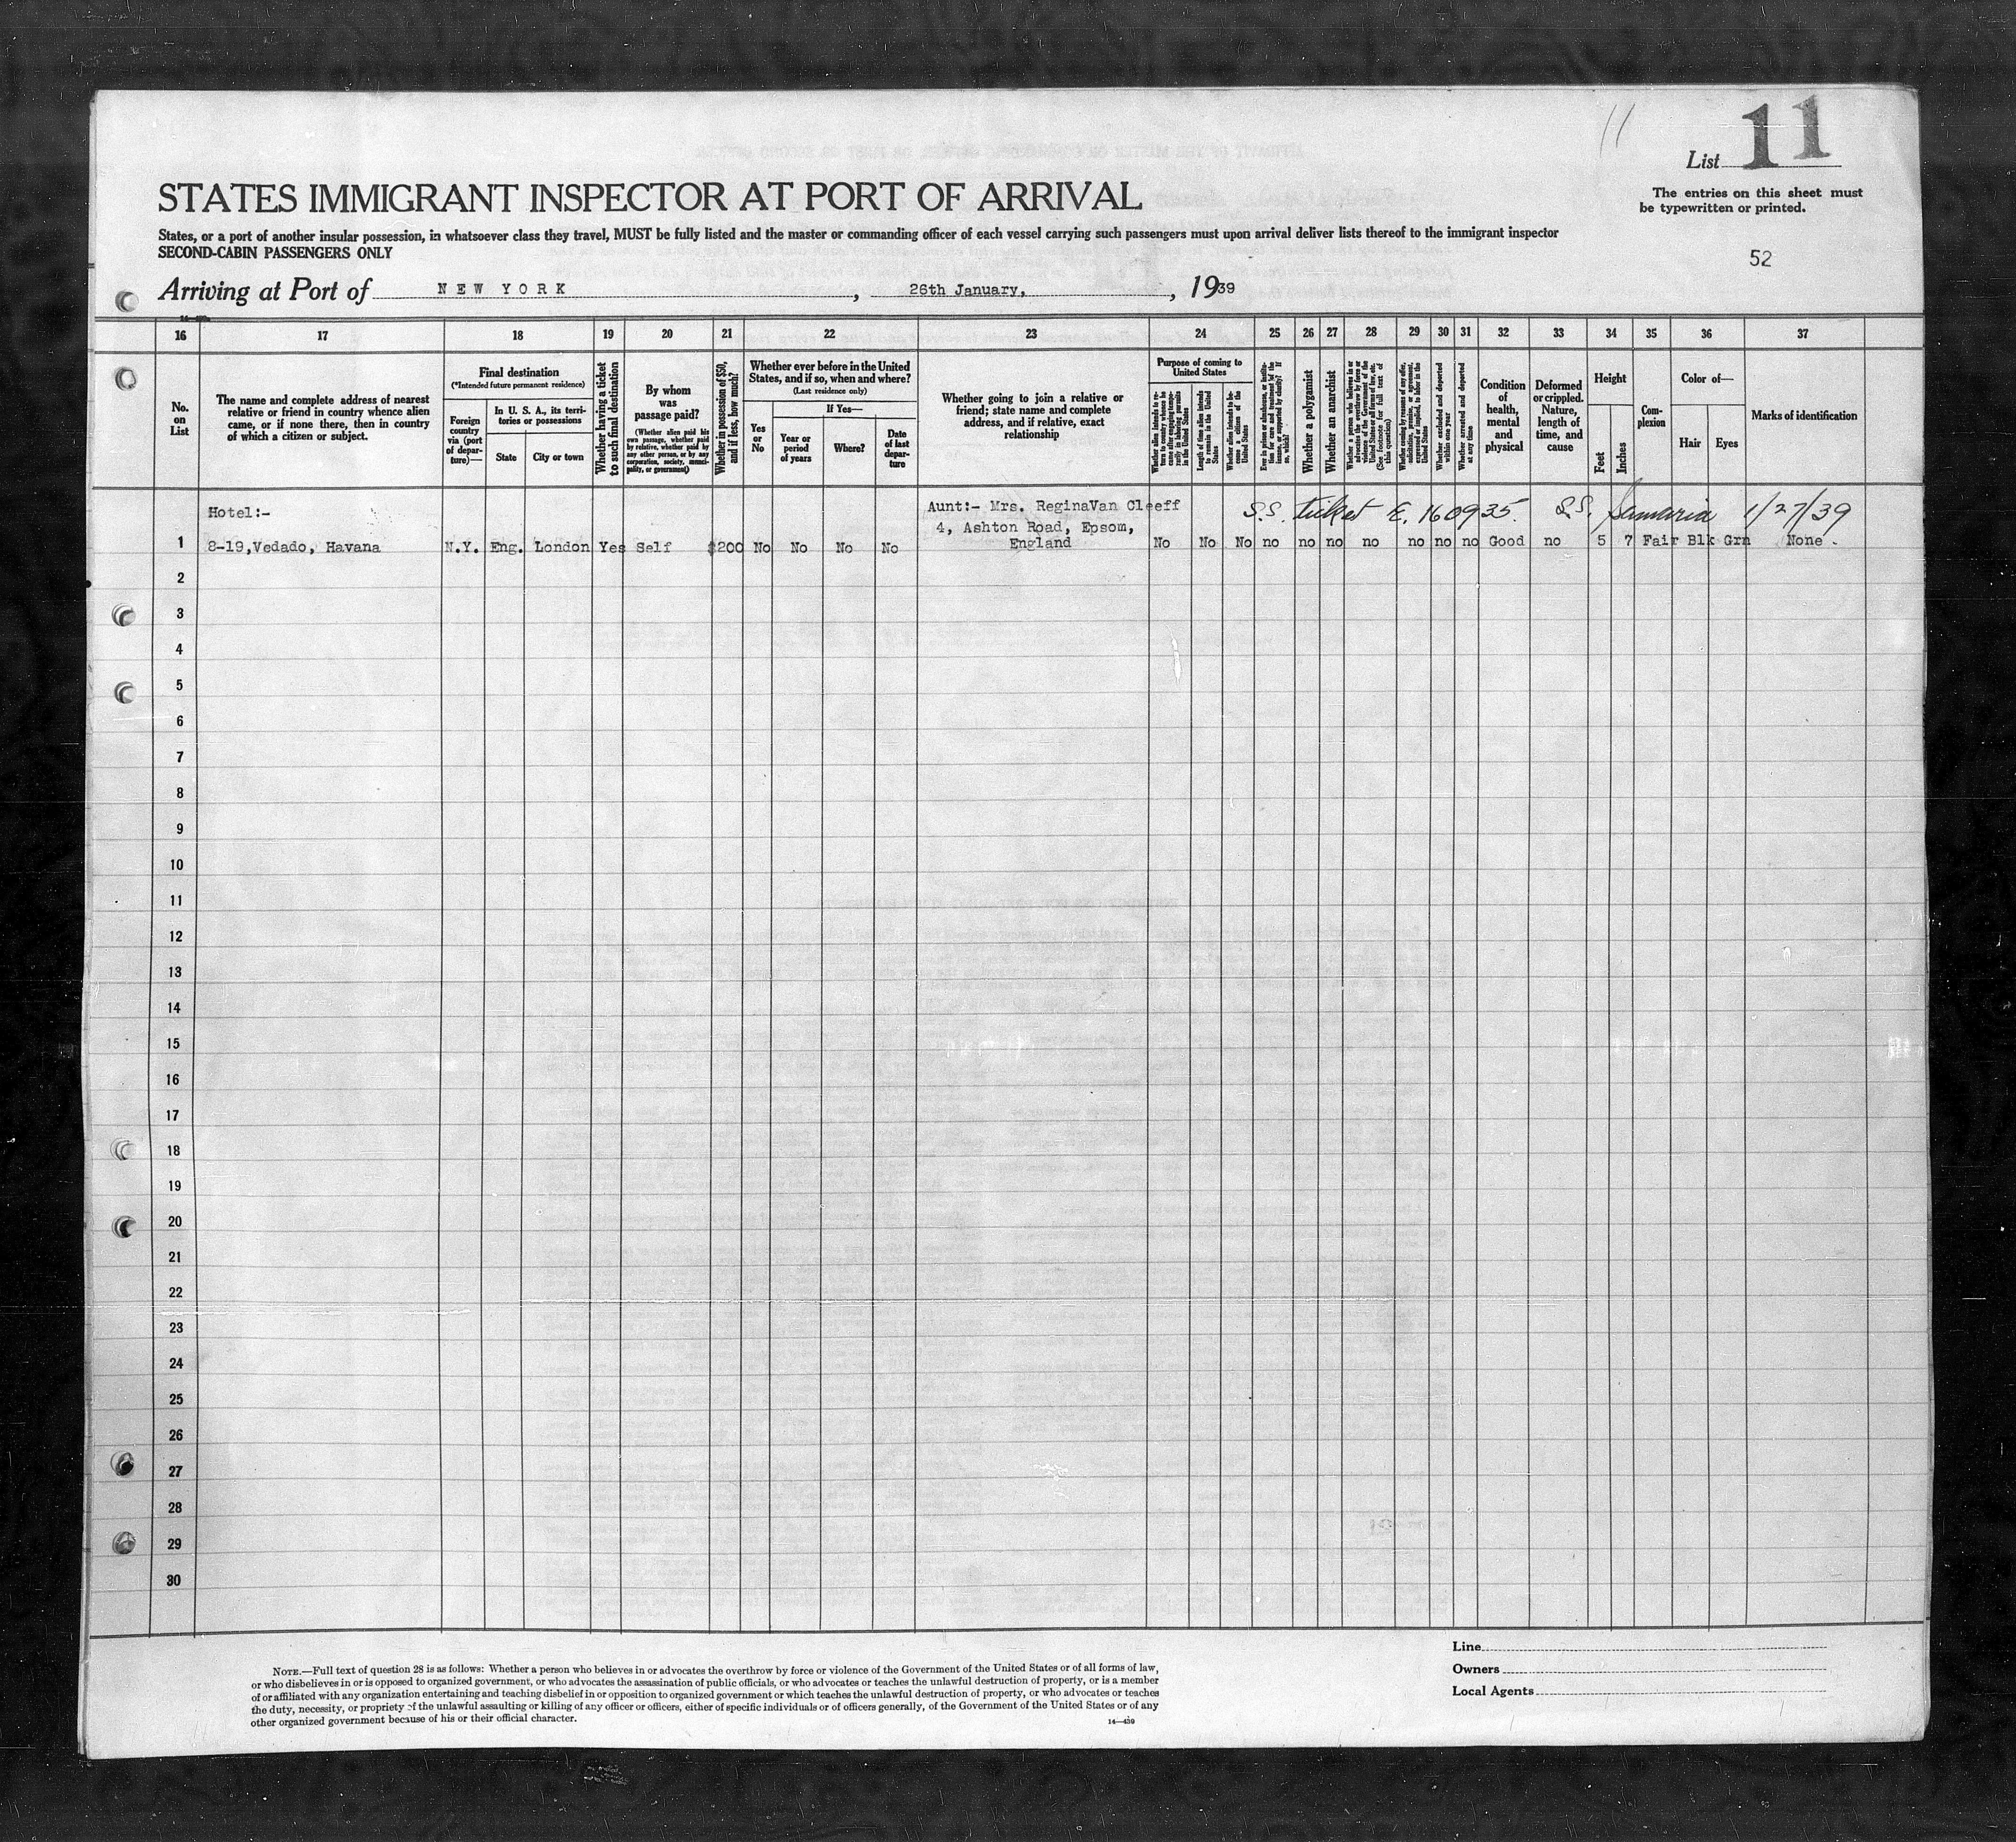 11
List 11
The entries on this sheet must
be typewritten or printed.
STATES IMMIGRANT INSPECTOR AT PORT OF ARRIVAL
States, or a port of another insular possession, in whatsoever class they travel, MUST be fully listed and the master or commanding officer of each vessel carrying such passengers must upon arrival deliver lists thereof to the immigrant inspector
SECOND-CABIN PASSENGERS ONLY
52
Arriving at Port of NEW YORK, 26th January, 1939
16 17 18 19 20 21 22 23 24 25 26 27 28 29 30 31 32 33 34 35 36 37
No. on List
The name and complete address of nearest
relative or friend in country whence alien
came, or if none there, then in country
of which a citizen or subject.
Final destination
(*Intended future permanent residence)
Foreign country via (port of departure)—
In U. S. A., its territories or possessions
State
City or town
Whether having a ticket to such final destination
By whom was passage paid?
(Whether alien paid his own passage, whether paid by relative, whether paid by any other person, or by any corporation, society, municipality, or government)
Whether in possession of $50, and if less, how much?
Whether ever before in the United
States, and if so, when and where?
(Last residence only)
Yes or No
If Yes—
Year or period of years
Where?
Date of last departure
Whether going to join a relative or
friend; state name and complete
address, and if relative, exact
relationship
Purpose of coming to United States
Whether alien intends to return to country whence he came after engaging temporarily in laboring pursuits in the United States
Length of time alien intends to remain in the United States
Whether alien intends to become a citizen of the United States
Ever in prison or almshouse, or institution for care and treatment of the insane, or supported by charity? If so, which?
Whether a polygamist
Whether an anarchist
Whether a person who believes in or advocates the overthrow by force or violence of the Government of the United States or all forms of law, etc. (See footnote for full text of this question)
Whether coming by reason of any offer, solicitation, promise, or agreement, expressed or implied, to labor in the United States
Whether excluded and deported within one year
Whether arrested and deported at any time
Condition of health, mental and physical
Deformed or crippled. Nature, length of time, and cause
Height
Feet
Inches
Complexion
Color of—
Hair
Eyes
Marks of identification
Hotel:-
Aunt:- Mrs. ReginaVan Cleeff
S.S. ticket E. 160935. S.S. Samaria 1/27/39
4, Ashton Road, Epsom,
England
1 8-19,Vedado, Havana N.Y. Eng. London Yes Self $200 No No No No No No No no no no no no no no Good no 5 7 Fair Blk Grn None.
2
3
4
5
6
7
8
9
10
11
12
13
14
15
16
17
18
19
20
21
22
23
24
25
26
27
28
29
30
Line
Owners
Local Agents
NOTE.—Full text of question 28 is as follows: Whether a person who believes in or advocates the overthrow by force or violence of the Government of the United States or of all forms of law,
or who disbelieves in or is opposed to organized government, or who advocates the assassination of public officials, or who advocates or teaches the unlawful destruction of property, or is a member
of or affiliated with any organization entertaining and teaching disbelief in or opposition to organized government or which teaches the unlawful destruction of property, or who advocates or teaches
the duty, necessity, or propriety of the unlawful assaulting or killing of any officer or officers, either of specific individuals or of officers generally, of the Government of the United States or of any
other organized government because of his or their official character.
14—439